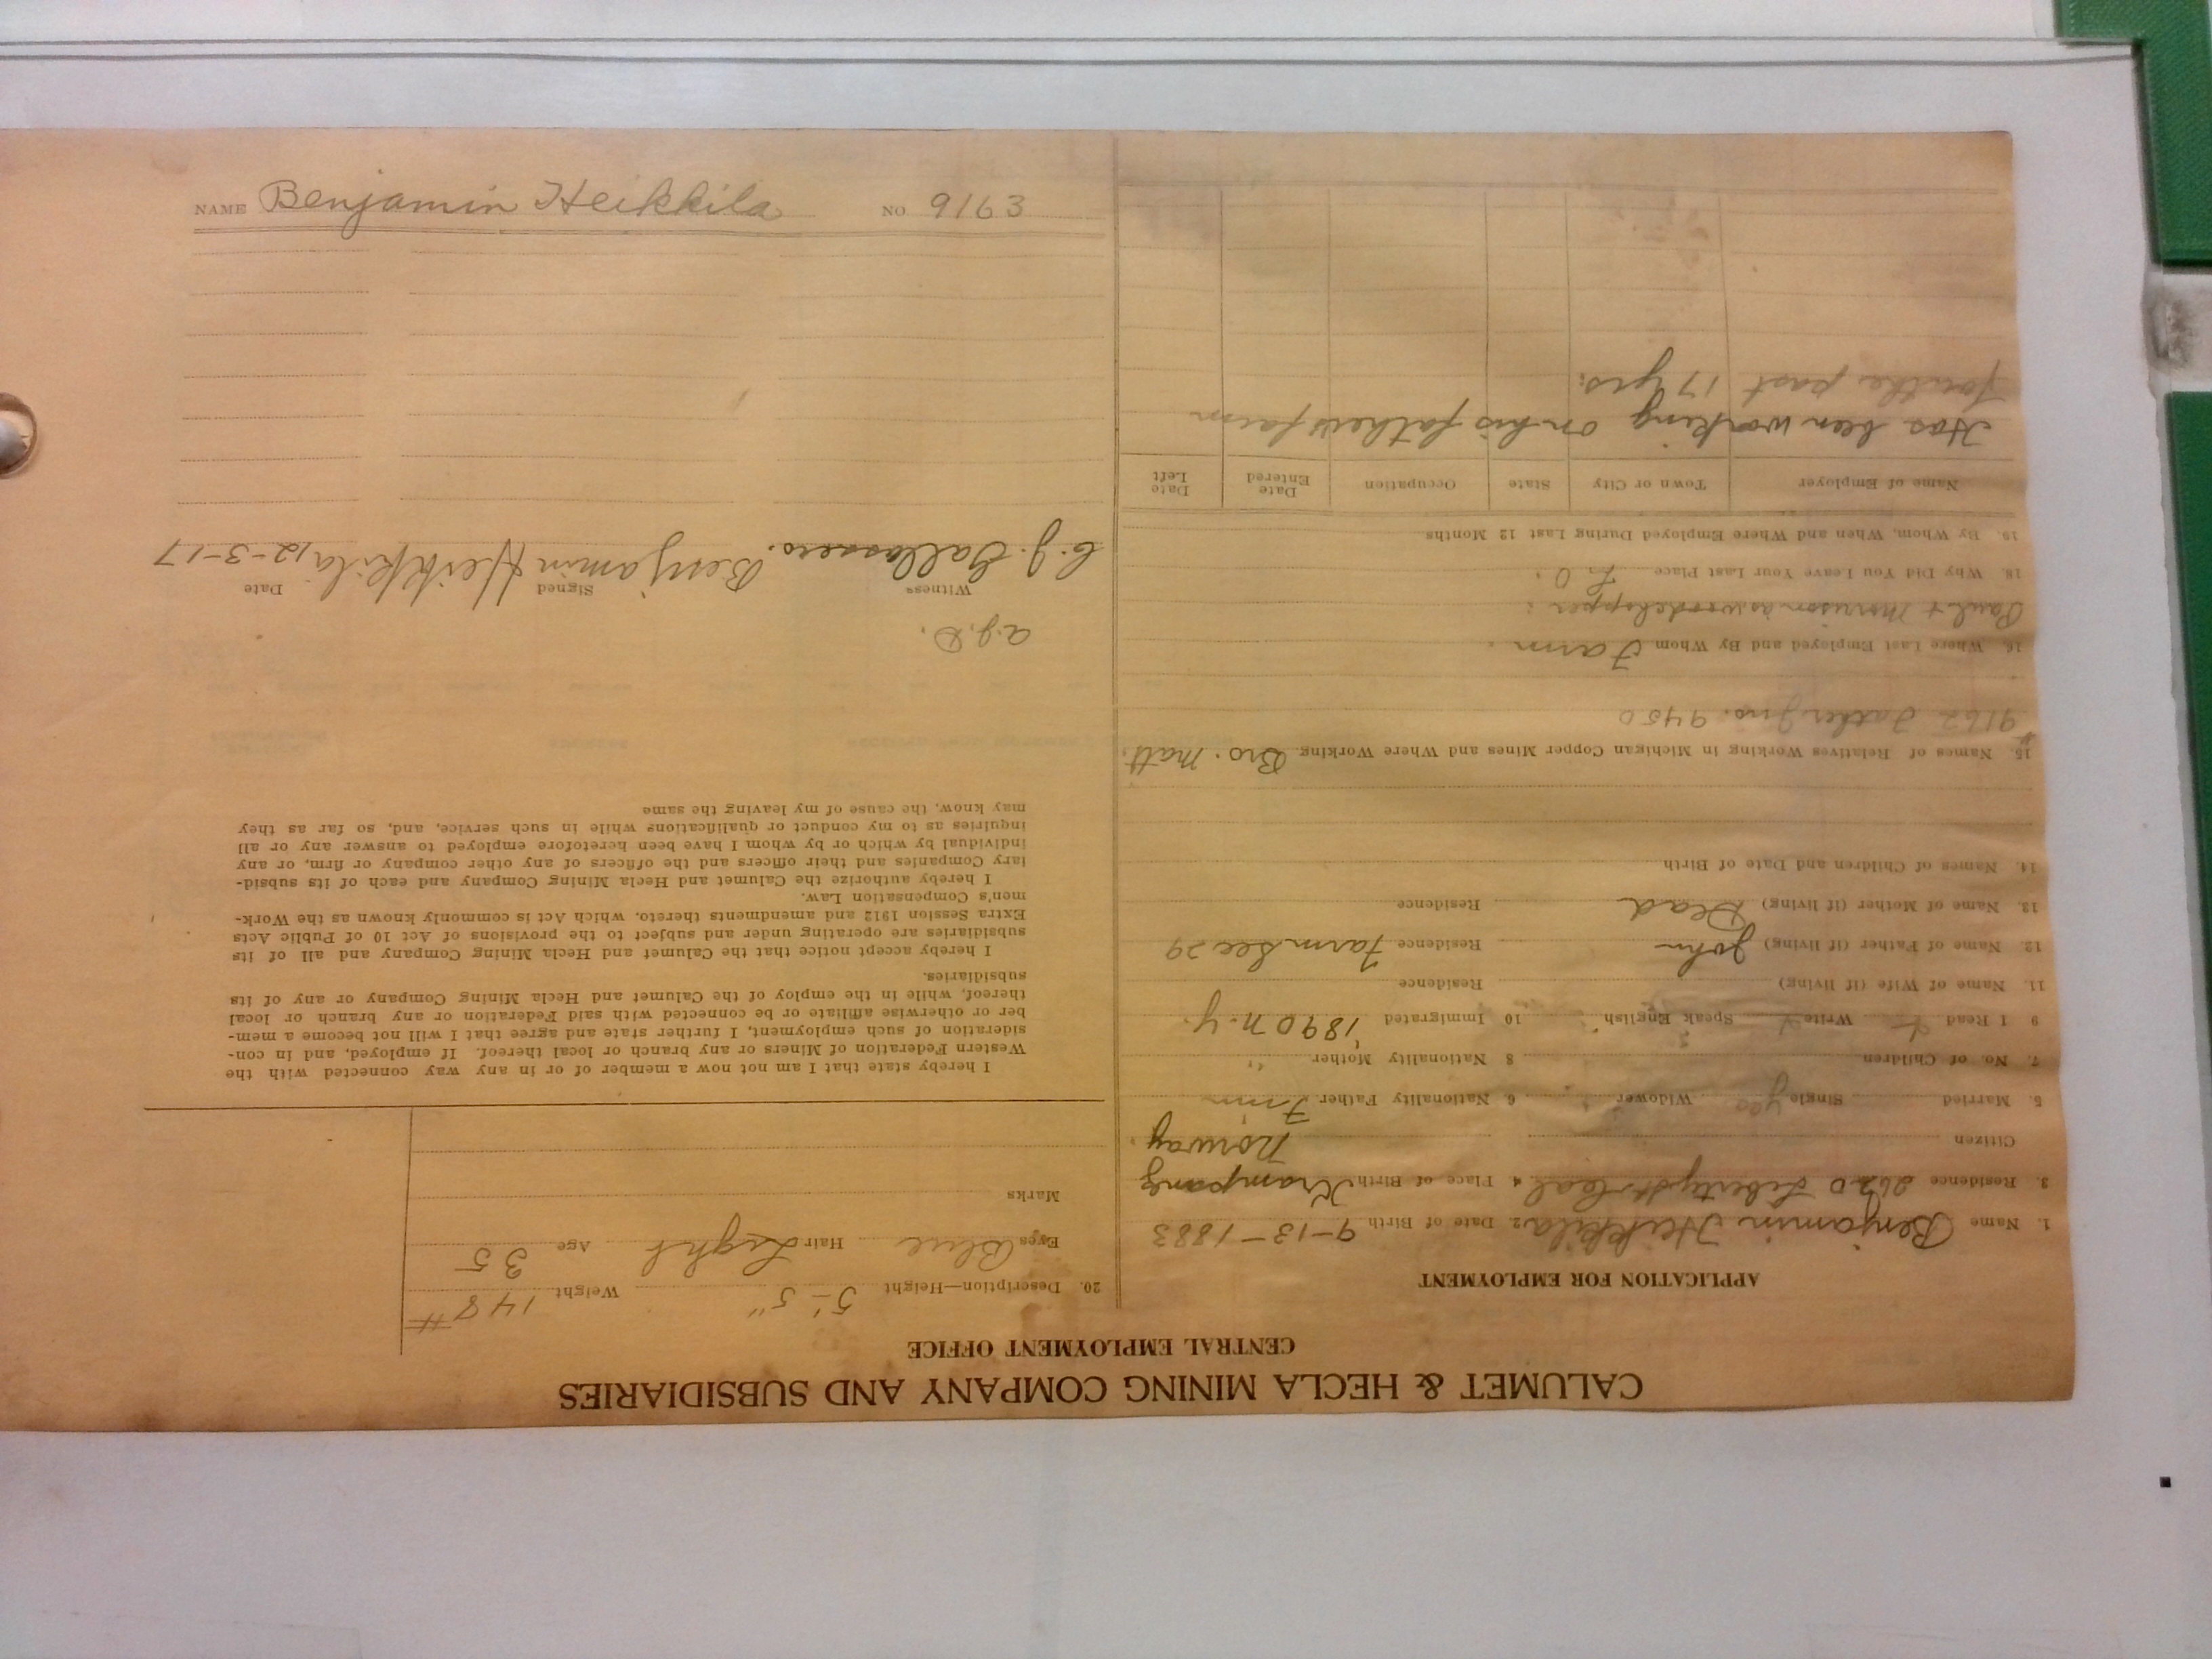 CALUMET & HECLA MINING COMPANY AND SUBSIDIARIES
CENTRAL EMPLOYMENT OFFICE
APPLICATION FOR EMPLOYMENT
1. Name Benjamin Heikkila 2. Date of Birth 9-13-1883
3. Residence 2620 Liberty St Cal 4 Place of Birth Krampang
Citizen Norway
5. Married Single yes Widower 6 Nationality Father Finn
7. No. of Children 8 Nationality Mother "
9 I Read Write Speak English 10 Immigrated 1890 N.Y.
11. Name of Wife (if living) Residence
12. Name of Father (if living) John Residence Farm Sec 29
13. Name of Mother (if living) Dead Residence
14. Names of Children and Date of Birth
15. Names of Relatives Working in Michigan Copper Mines and Where Working Bro. Matt.
#9162 Father Jno. 9450
16. Where Last Employed and By Whom Farm
Paul & Morrison as woodchopper
18. Why Did You Leave Your Last Place
19. By Whom, When and Where Employed During Last 12 Months
Name of Employer Town or City State Occupation Date Entered Date Left
Has been working on his fathers farm
for the past 17 yrs.
20. Description—Height 5'-5" Weight 148#
Eyes Blue Hair Light Age 35
Marks
I hereby state that I am not now a member of or in any way connected with the
Western Federation of Miners or any branch or local thereof. If employed, and in con-
sideration of such employment, I further state and agree that I will not become a mem-
ber or otherwise affiliate or be connected with said Federation or any branch or local
thereof, while in the employ of the Calumet and Hecla Mining Company or any of its
subsidiaries.
I hereby accept notice that the Calumet and Hecla Mining Company and all of its
subsidiaries are operating under and subject to the provisions of Act 10 of Public Acts
Extra Session 1912 and amendments thereto, which Act is commonly known as the Work-
men's Compensation Law.
I hereby authorize the Calumet and Hecla Mining Company and each of its subsid-
iary Companies and their officers and the officers of any other company or firm, or any
individual by which or by whom I have been heretofore employed to answer any or all
inquiries as to my conduct or qualifications while in such service, and, so far as they
may know, the cause of my leaving the same
a.g.D.
Witness Signed Date
Benjamin Heikkila 12-3-17
NAME Benjamin Heikkila NO 9163